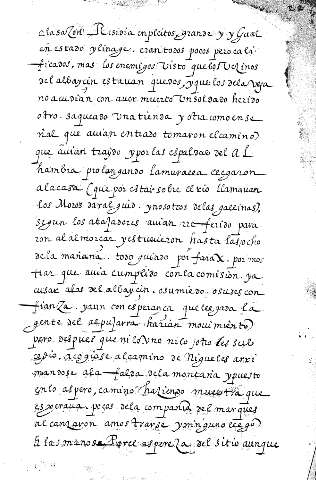 a la sazon Residia en pleitos, grande y ygual
en estado y linage. eran todos pocos pero cali
ficados, mas los enemigos visto que los vezinos
del albayçin estavan quedos, y que los de la vega
no acudian con aver muerto un soldado herido
otro. saqueado una tienda y otra como en se
ñal que avian entrado tomaron el camino
que avian traydo y por las espaldas del Al
hambra prolongando la muralla llegaron
a la casa (que por estar sobre el rio llamavan
los Moros daralguid. y nosotros de las gallinas)
segun los atajadores avian referido para
ron al almorzar y estuvieron hasta las ocho
de la mañana. todo guiado por farax. por mos
trar que avia cumplido con la comision. ya
cusar a los del albayçin. o su miedo o su desco
fianza. y aun con esperança que llegada la
gente del alpujarra harian movimiento
pero. despues que ni lo uno ni lo jotro les suc
edio. acogiose al camino de Nigueles arri
mandose a la falda de la montaña y puesto
en lo aspero, camino haziendo muestra que
esperava. pocos de la compañia del marques
alcanzaron a mostrarse y ninguno llego
a las manos Por el aspereza del sitio aunque